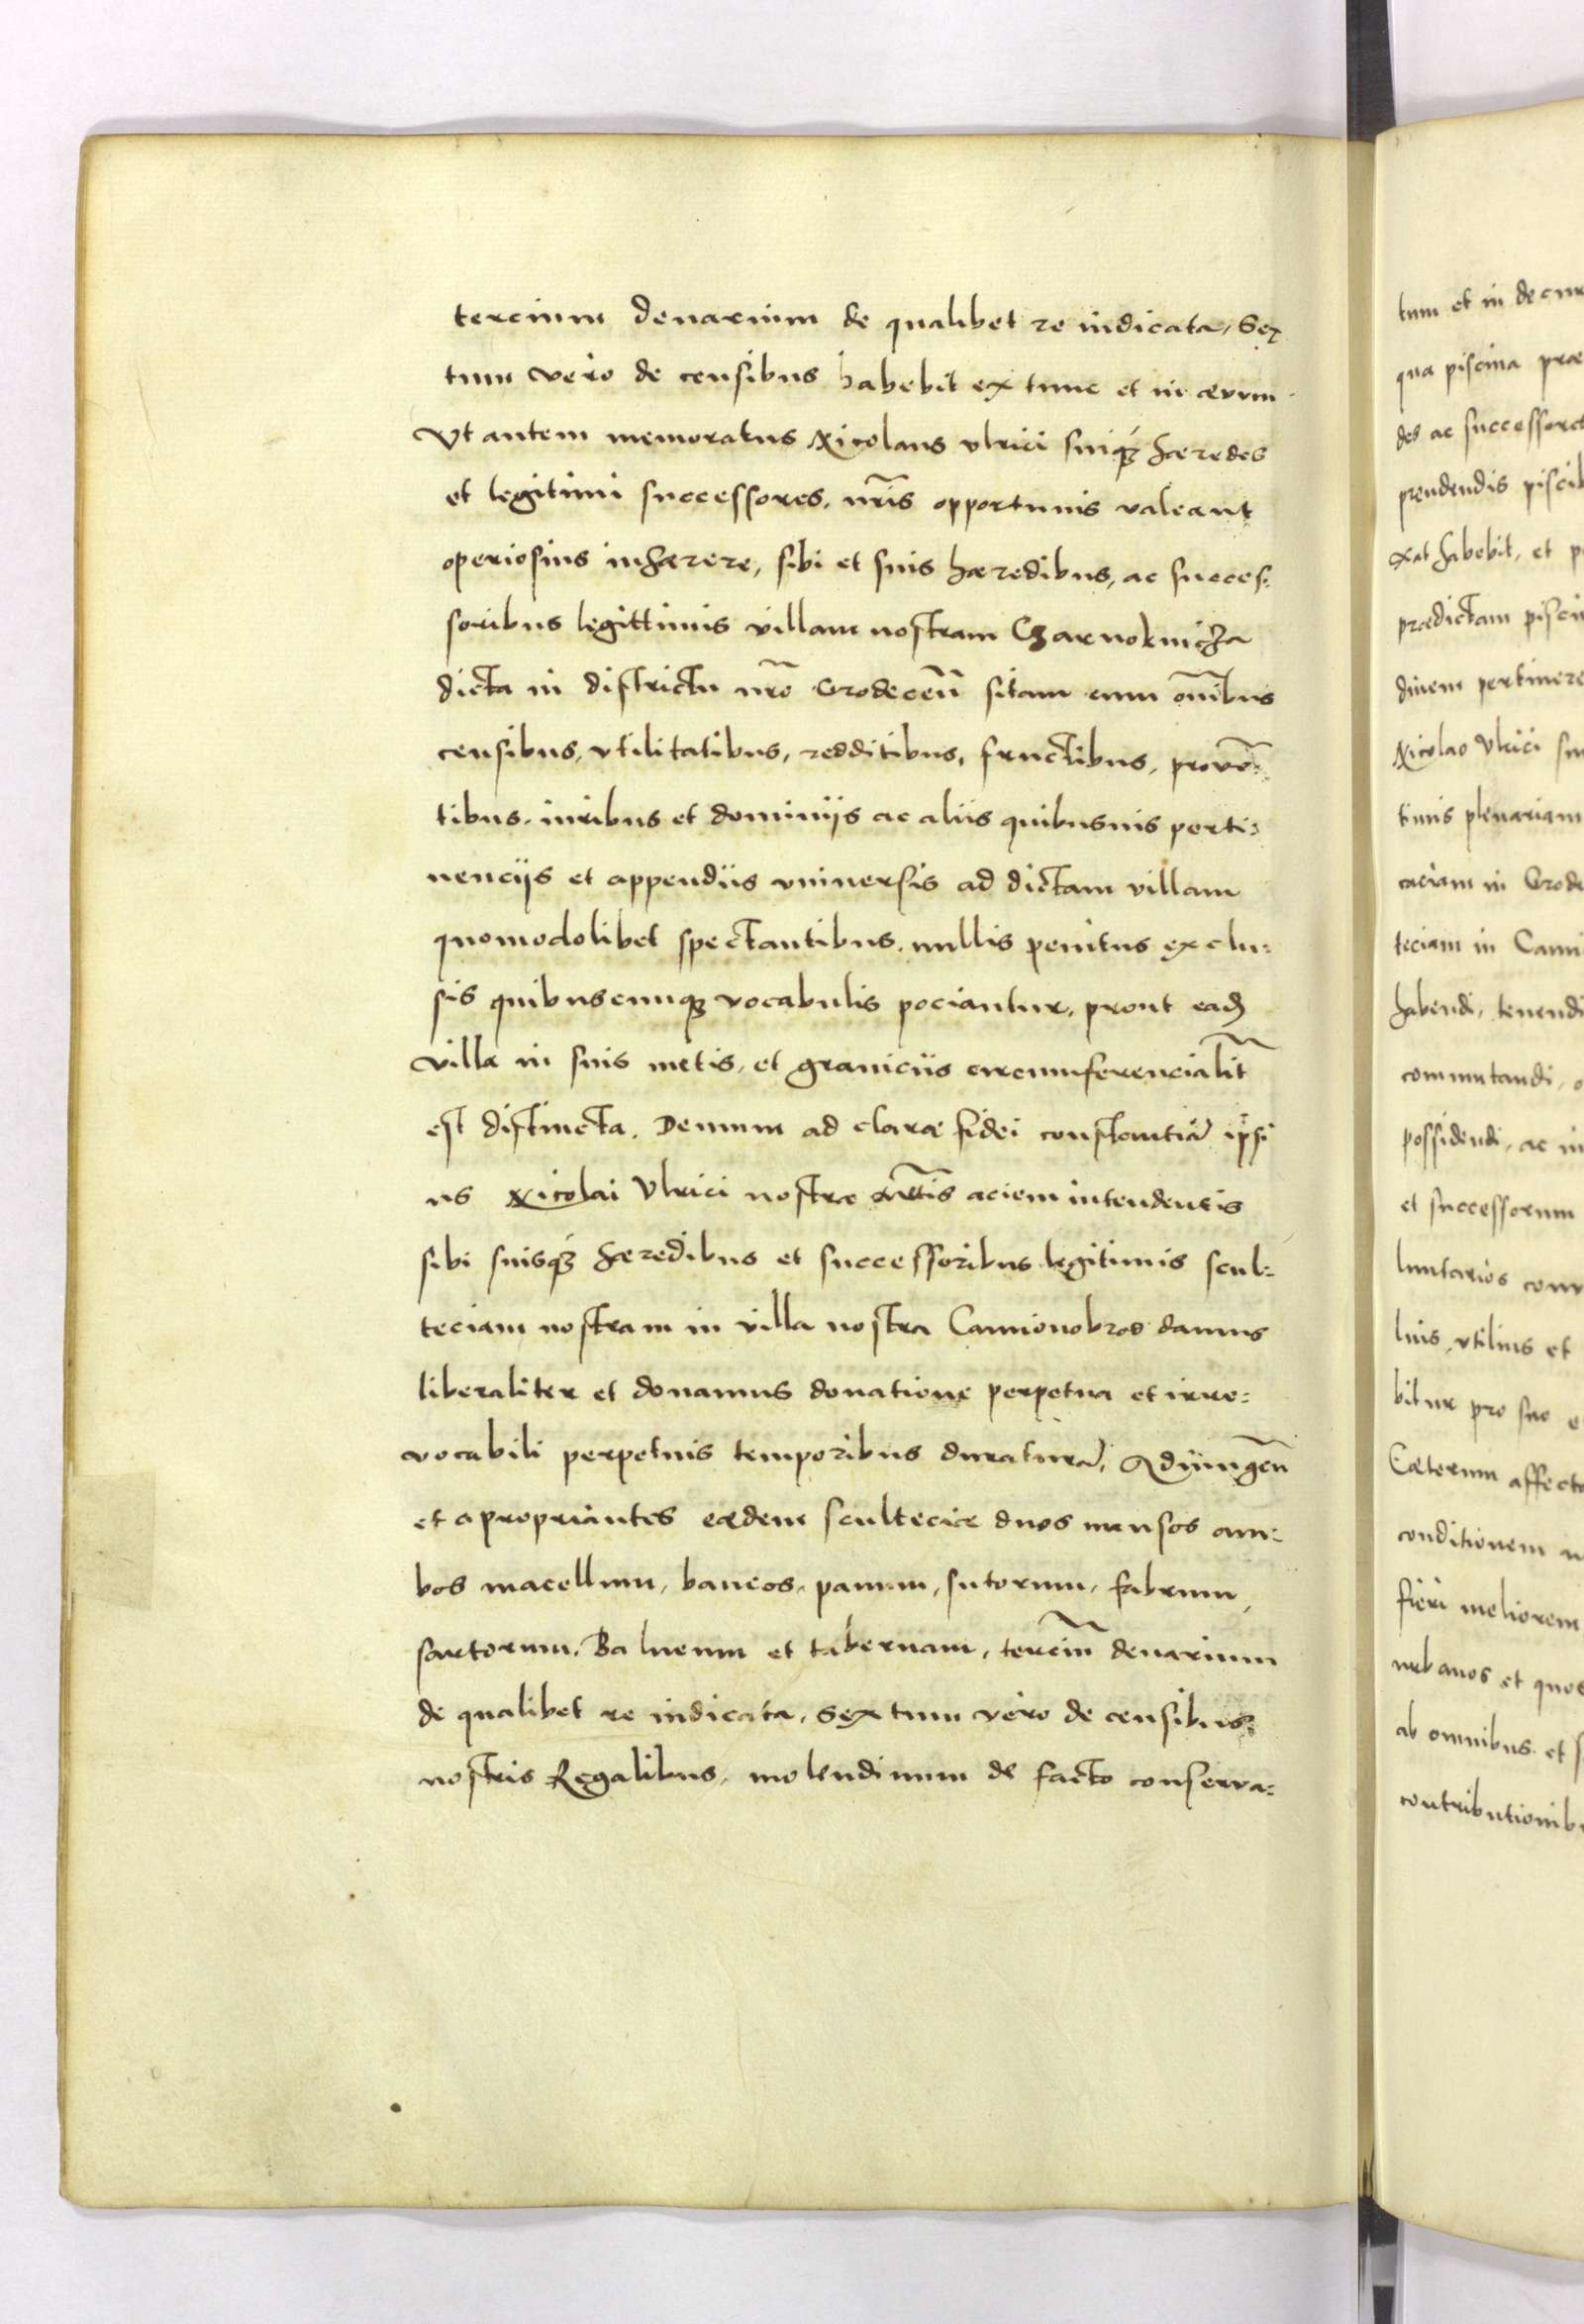 tercium denarium de qualibet re iudicata, Sex
tum vero de censibus habebit ex tunc et in aevum.
Vt autem memoratus Nicolaus vlrici suiq́ꝫ haeredes
et legitimi successores, nr̃is opportunis valeant
operiosius inhaerere, sibi et suis haeredibus, ac succes:
soribus legittimis villam nostram Czarnokuicza
dicta in districtu nr̃o Grodeceñ sitam cum om̃ibus
censibus, vtilitatibus, redditibus, fructibus, provẽ:
tibus, iuribus et dominijs ac aliis quibusuis perti:
nencijs et appendiis vniuersis ad dictam villam
quomodolibet spectantibus, nullis penitus exclu:
sis quibuscumqꝫ vocabulis pociantur, prout eadꝫ
villa in suis metis, et graniciis circumferencialit̃
est distincta. Demum ad clarae fidei constantiã ipsi
us Nicolai Vlrici nostrae aciem intendentis
sibi suisq́ꝫ haeredibus et successoribus legitimis scul:
teciam nostram in villa nostra Camionobrod damus
liberaliter et donamus donatione perpetua et irre:
vocabili perpetuis temporibus duraturã, Adiungeñ
et apropriantes eaedem sculteciae duos mansos am:
bos macellum, bancos, panum, sutorum, fabrum,
sartorum, Balneum et tabernam, terciũ denarium
de qualibet re iudicata, Sextum vero de censibus
nostris Regalibus, molendinum de facto conserva:
tum et in decur
qua piscina prae
des ac successores
prendendis piscib
xat habebit, et p
praedictam pisci
dinem pertinere
Nicolao Vlrici su
timis plenariam
caciam in Grode
teciam in Cami
habendi, tenendi
commutandi, o
possidendi, ac in
et successorum
luntarios conv
lius, vtilius et
bitur pro suo e
Caeterum affecta
conditionem n
fieri meliorem
urbanos et quos
ab omnibus et s
contributionib